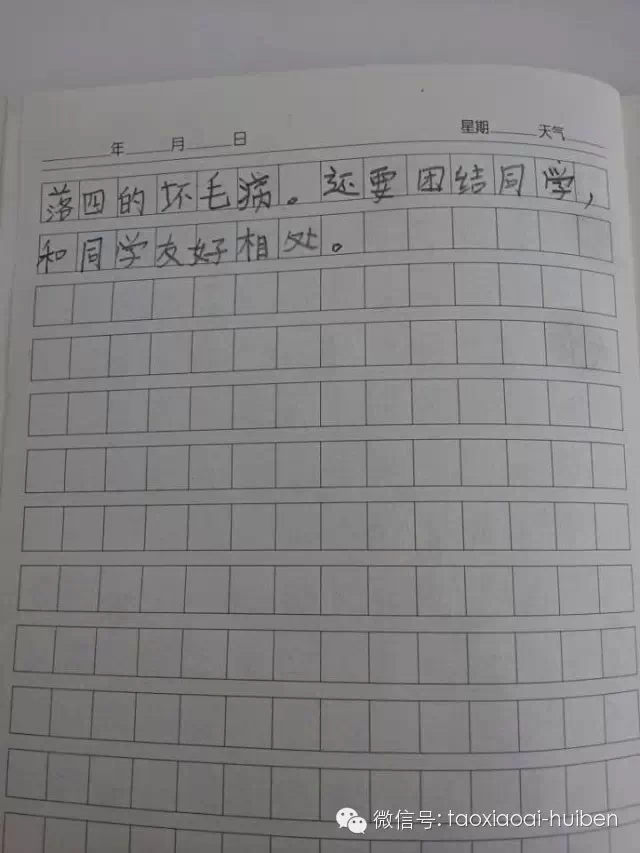 年 月 日 星期 天气
落四的坏毛病。还要团结同学,
和同学友好相处。
微信号: taoxiaoai-huiben